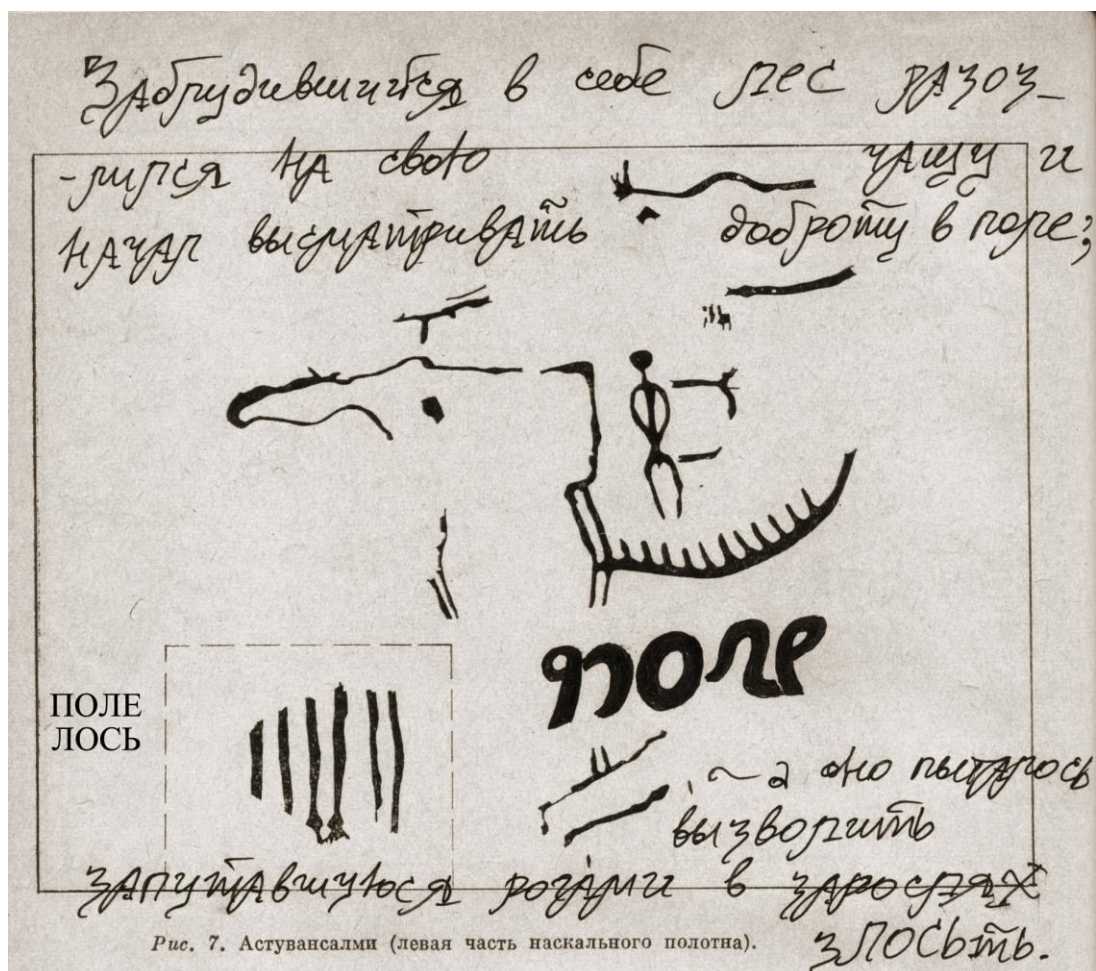 Заблудившийся в себе лес разоз-
-лился на свою чащу и
начал высматривать доброту в поле;
поле
ПОЛЕ
ЛОСЬ
~ а оно пыталось
вызволить
запутавшуюся рогами в зарослях
зЛОСЬть.
Рис. 7. Астувансалми (левая часть наскального полотна).